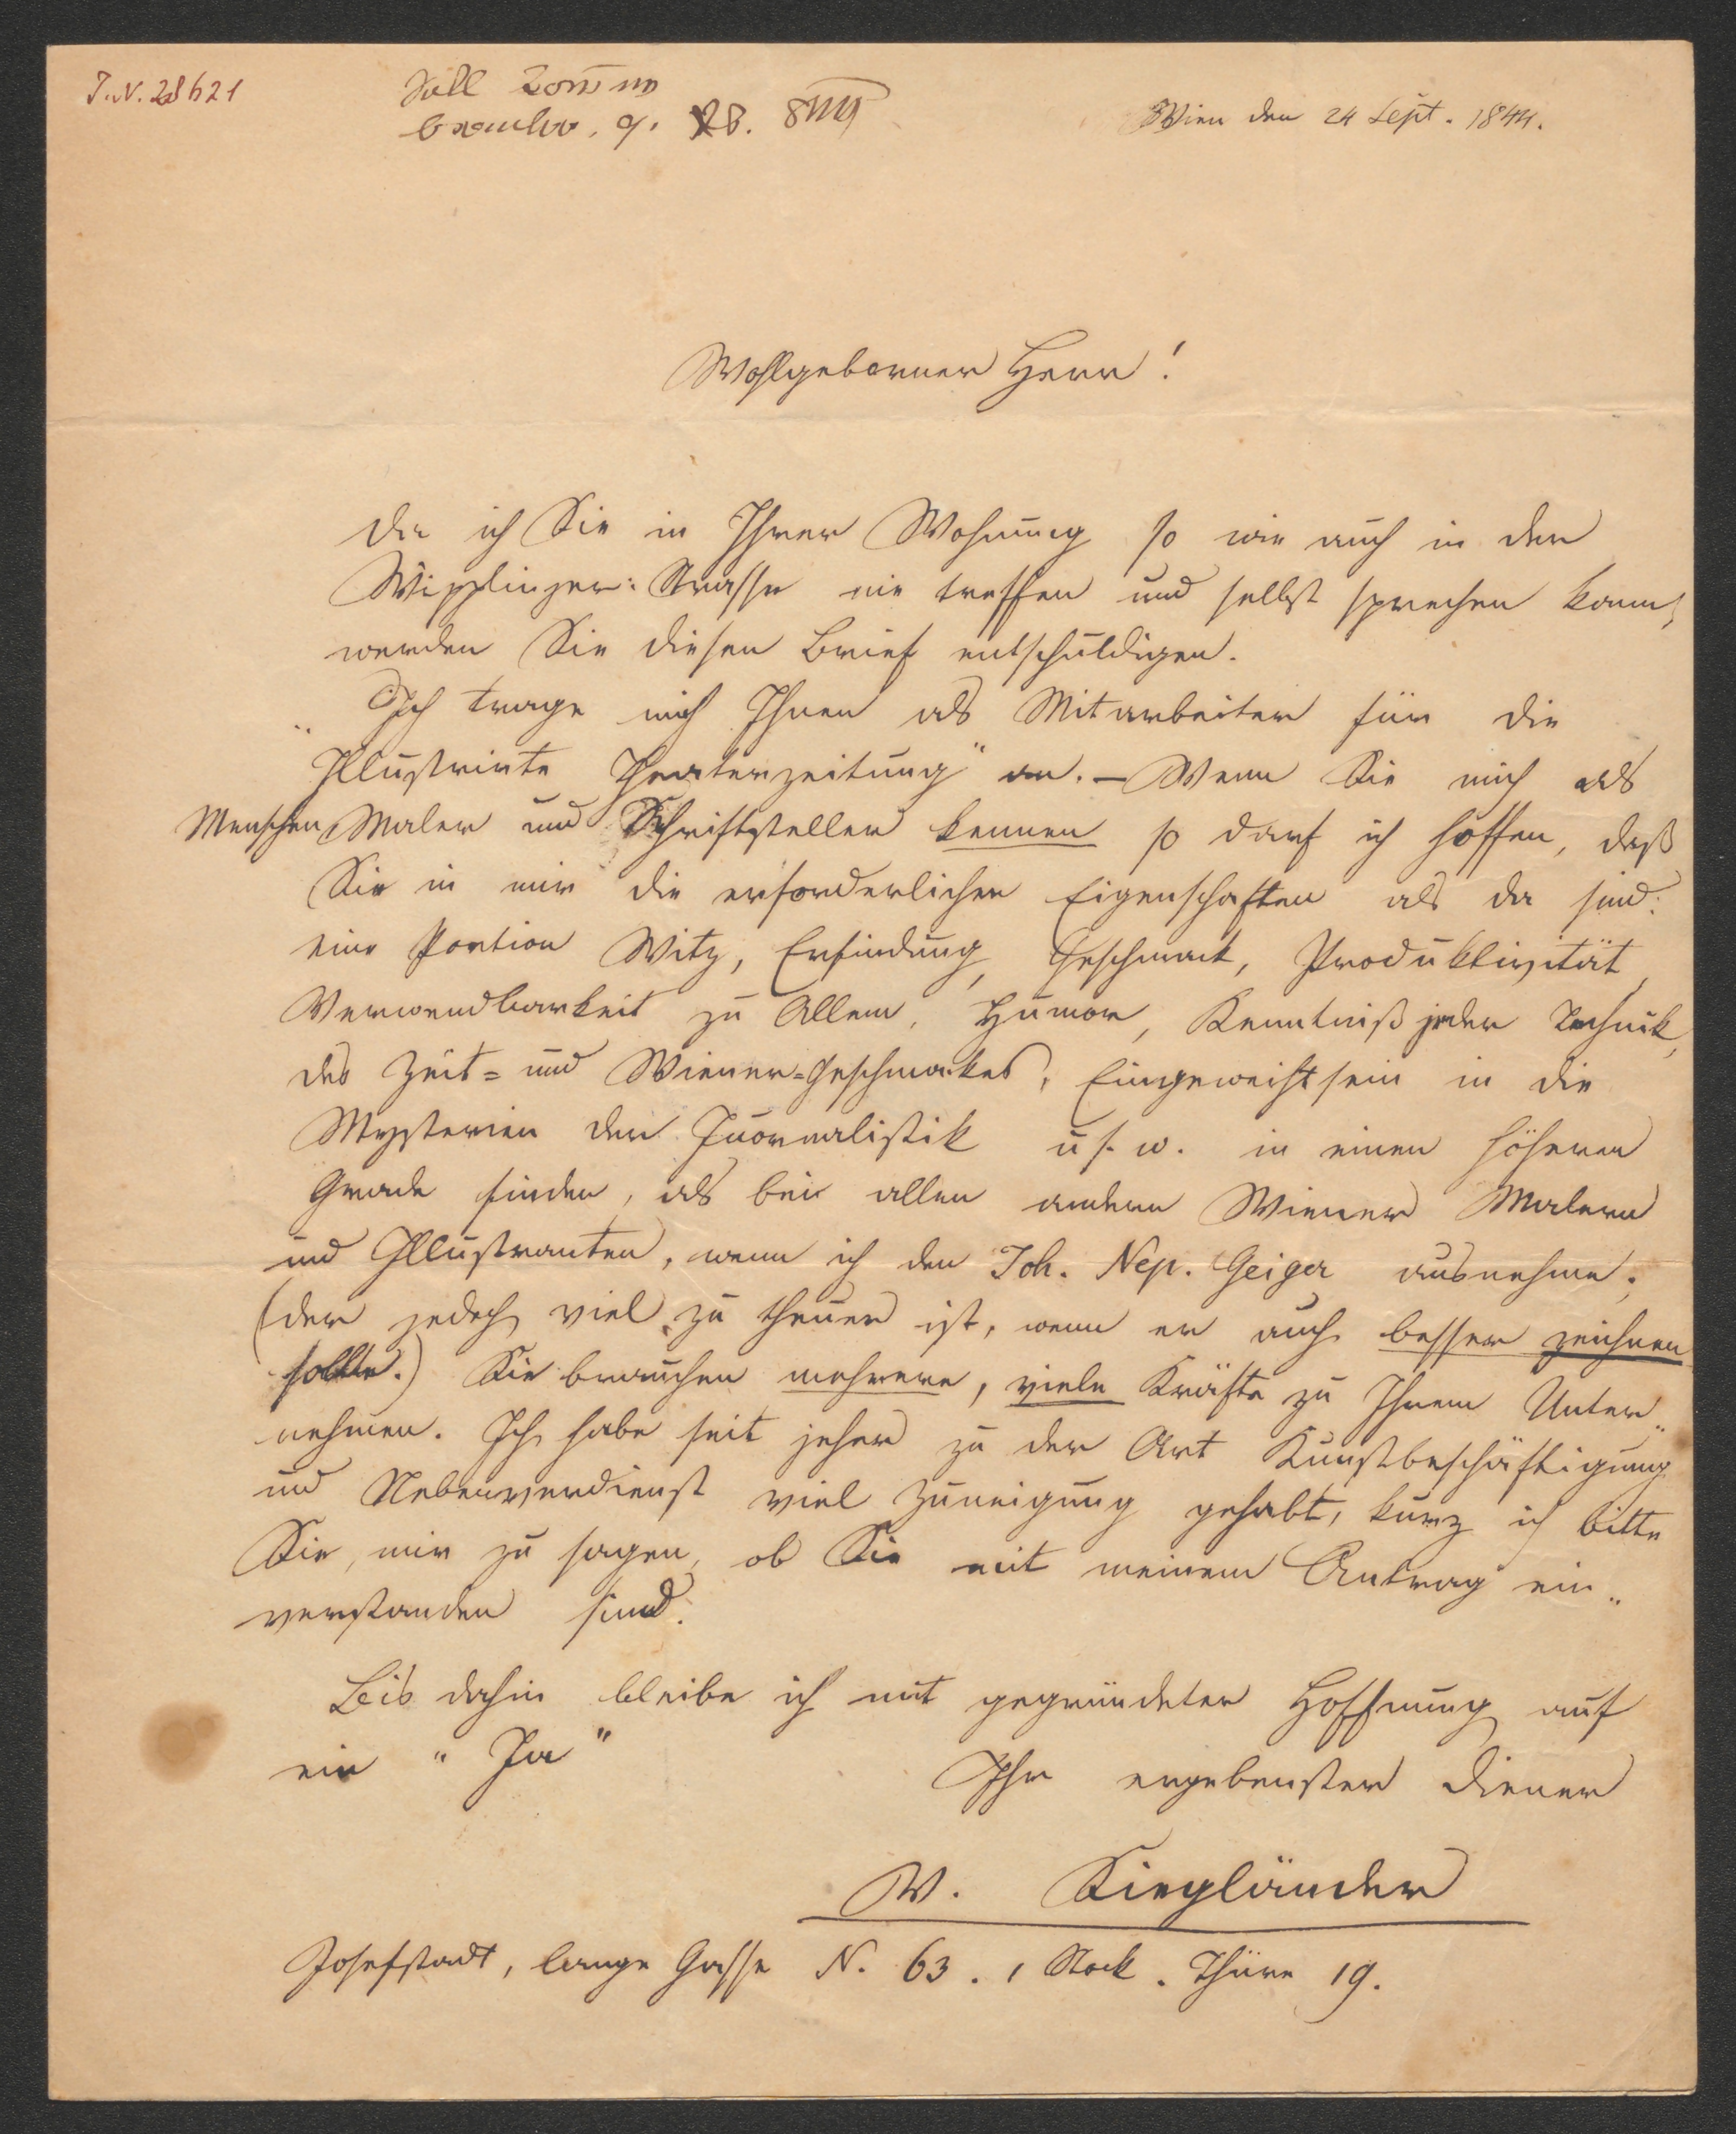 I.N. 28621
Soll
Wien den 24 Sept. 1844.
Wohlgeborner Herr!
Da ich Sie in Ihrer Wohnung so wie auch in der
Wipplinger: Strasse nie treffen und selbst sprechen kann,
werden Sie diesen Brief entschuldigen.
Ich trage mich Ihnen als Mitarbeiter für die
„Illustrirte Theaterzeitung" an. – Wenn Sie mich als
Menschen, Maler und Schriftsteller kennen so darf ich hoffen, daß
Sie in mir die erforderlichen Eigenschaften als da sind:
eine Portion Witz, Erfindung, Geschmack, Produktivität,
Verwendbarkeit zu Allem, Humor, Kenntniß jeder Technik,
des Zeit= und Wiener=Geschmackes, Eingeweihtsein in die
Mysterien der Juornalistik u s. w. in einen höheren
Grade finden, als bei allen andern Wiener Malern
und Illustranten, wenn ich den Joh. Nep. Geiger ausnehme,
(der jedoch viel zu theuer ist, wenn er auch besser zeichnen
sollte.) Sie brauchen mehrere, viele Kräfte zu Ihrem Unter„
nehmen. Ich habe seit jeher zu der Art Kunstbeschäftigung
und Nebenverdienst viel Zuneigung gehabt, kurz ich bitte
Sie, mir zu sagen, ob Sie mit meinem Antrag ein„
verstanden sind.
Bis dahin bleibe ich mit gegründeter Hoffnung auf
ein "Ja"
Ihr ergebenster Diener
W. Siegländer
Josefstadt, lange Gasse N. 63. 1 Stock. Thüre 19.